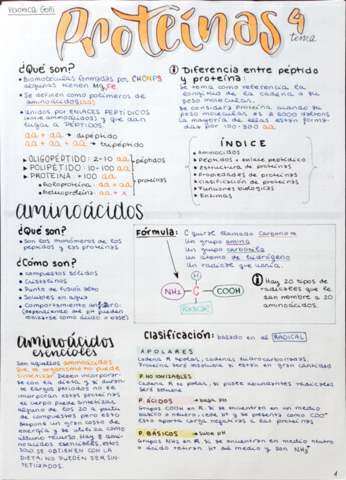 Verónica Goñi
Proteínas
4
tema
¿Qué son?
• Biomoléculas formadas por CHONPS
algunas tienen Mg, Fe.
• Se definen como polímeros de
aminoácidos (aa)
• Unidos por ENLACES PEPTÍDICOS
(entre aminoácidos) y que dan
lugar a PÉPTIDOS.
aa + aa → dipéptido
aa + aa + aa → tripéptido
▷ OLIGOPÉPTIDO: 2-10 aa
▷ POLIPÉTIDO: 10-100 aa
péptidos
▷ PROTEÍNA: +100 aa
• holoproteína: aa + aa
• heteroproteína: aa + x
proteínas
Diferencia entre péptido
y proteína:
Se toma como referencia la
longitud de la cadena o su
peso molecular.
Se considera proteína cuando su
peso molecular es > 5000 daltons
la mayoría de ellas están forma-
das por 100-300 aa
ÍNDICE
▷ Aminoácidos
▷ Péptidos + enlace peptídico
▷ Estructura de proteínas
▷ Propiedades de proteínas
▷ Clasificación de proteínas
▷ Funciones biológicas
▷ Enzimas
aminoácidos
¿Qué son?
• Son los monómeros de los
péptidos y las proteínas
¿Cómo son?
• compuestos sólidos
• Cristalinos
• Punto de fusión alto
• Solubles en agua
• Comportamiento anfótero
(dependiendo del pH pueden
ionizarse como ácido o base)
Fórmula:
C quiral llamado Carbono α
Un grupo amino
Un grupo carboxilo
Un átomo de hidrógeno
Un radical que varía.
H
NH₂ – C – COOH
RADICAL
Hay 20 tipos de
radicales que le
dan nombre a 20
aminoácidos.
aminoácidos
esenciales
Son aquellos aminoácidos
que el organismo no puede
sintetizar. Deben incorporar-
se con la dieta, y si duran-
te largos periodos no se
incorporan estas proteínas
el cuerpo puede sintetizar
alguno de los 20 a partir
de compuestos pero esto
supone un gran coste de
energía y se utiliza como
último recurso. Hay 8 amino-
ácidos esenciales, estos
solo se obtienen con la
DIETA. NO PUEDEN SER SIN-
TETIZADOS.
Clasificación: basado en el RADICAL
APOLARES
Cadena R apolar, cadenas hidrocarbonadas.
Proteína será insoluble si están en gran cantidad
P. NO IONIZABLES
Cadena R es polar, si posee abundantes radicales
será soluble
P. ÁCIDOS → bajan pH
Grupos COOH en R. Si se encuentra en un medio
básico o neutro, cede H⁺ y se presenta como COO⁻
esto aporta carga negativa a las proteínas
P. BÁSICOS → Sube pH
Grupos NH₂ en R. Si se encuentran en medio neutro
o ácido retiran H⁺ del medio y son NH₃⁺
1